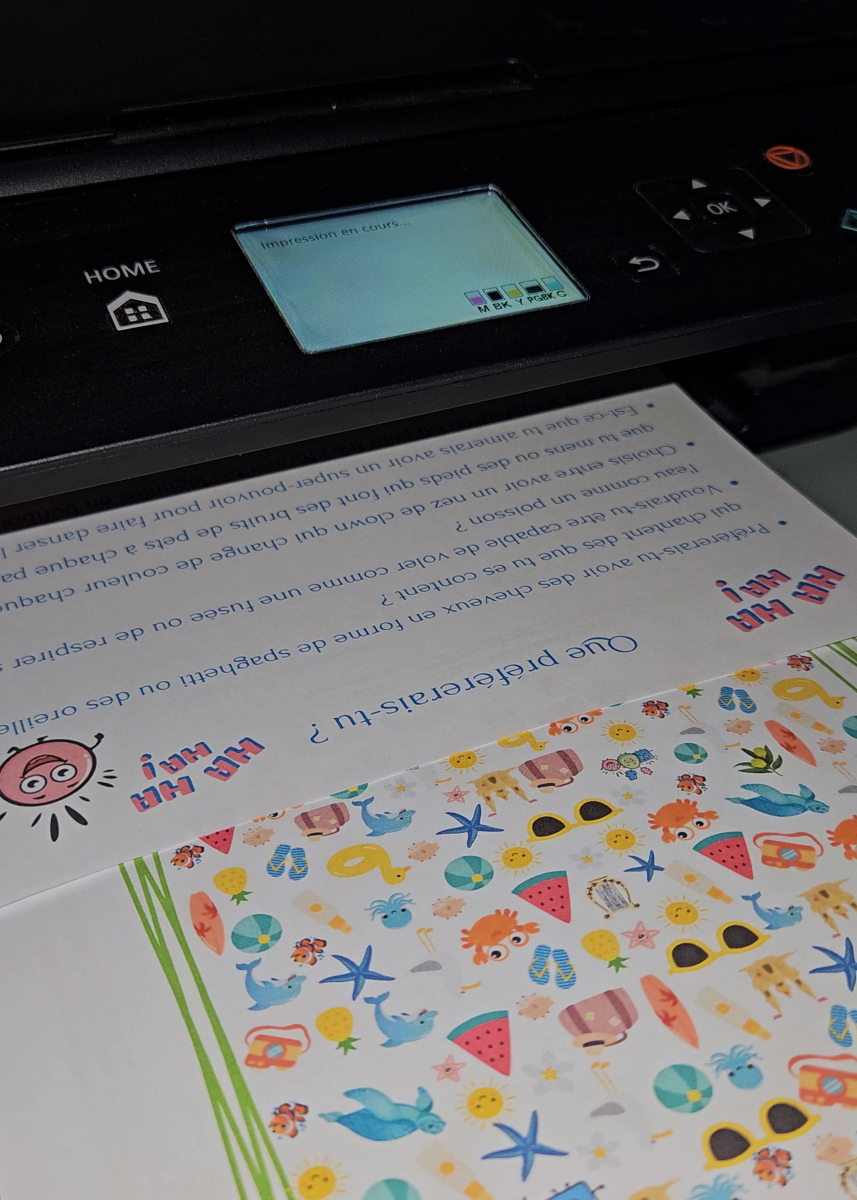 HOME
OK
Impression en cours...
M BK Y PGBK C
HA HA
HA !
HA HA
HA !
Que préférerais-tu ?
• Préférerais-tu avoir des cheveux en forme de spaghetti ou des
qui chantent dès que tu es content ?
• Voudrais-tu être capable de voler comme une fusée ou de respirer
l'eau comme un poisson ?
• Choisis entre avoir un nez de clown qui change de couleur
que tu mens ou des pieds qui font des bruits de pets à chaque
• Est-ce que tu aimerais avoir un super-pouvoir pour faire danser